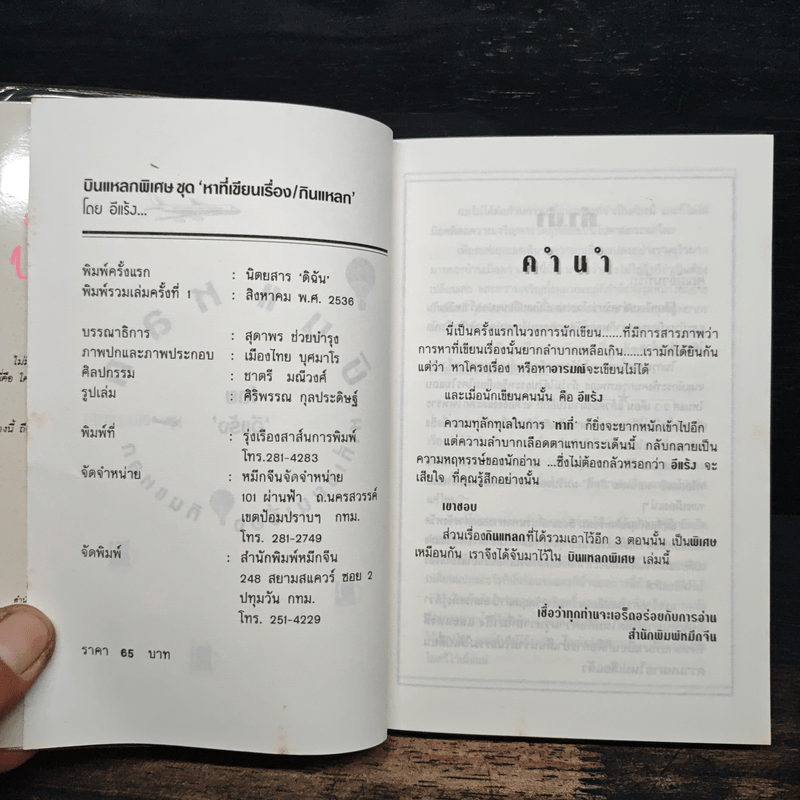 บินแหลกพิเศษ ชุด 'หาที่เขียนเรื่อง/กินแหลก'
โดย อีแร้ง...
พิมพ์ครั้งแรก : นิตยสาร 'ดิฉัน'
พิมพ์รวมเล่มครั้งที่ 1 : สิงหาคม พ.ศ. 2536
บรรณาธิการ : สุดาพร ช่วยบำรุง
ภาพปกและภาพประกอบ : เมืองไทย บุศมาโร
ศิลปกรรม : ชาตรี มณีวงศ์
รูปเล่ม : ศิริพรรณ กุลประดิษฐ์
พิมพ์ที่ : รุ่งเรืองสาส์นการพิมพ์
โทร.281-4283
จัดจำหน่าย : หมึกจีนจัดจำหน่าย
101 ผ่านฟ้า ถ.นครสวรรค์
เขตป้อมปราบฯ กทม.
โทร. 281-2749
จัดพิมพ์ : สำนักพิมพ์หมึกจีน
248 สยามสแควร์ ซอย 2
ปทุมวัน กทม.
โทร. 251-4229
ราคา 65 บาท
คำนำ
นี่เป็นครั้งแรกในวงการนักเขียน.....ที่มีการสารภาพว่า
การหาที่เขียนเรื่องนั้นยากลำบากเหลือเกิน.....เรามักได้ยินกัน
แต่ว่า หาโครงเรื่อง หรือหาอารมณ์จะเขียนไม่ได้
และเมื่อนักเขียนคนนั้น คือ อีแร้ง
ความทุลักทุเลในการ 'หาที่' ก็ยิ่งจะยากหนักเข้าไปอีก
แต่ความลำบากเลือดตาแทบกระเด็นนี้ กลับกลายเป็น
ความหฤหรรษ์ของนักอ่าน ...ซึ่งไม่ต้องกลัวหรอกว่า อีแร้ง จะ
เสียใจ ที่คุณรู้สึกอย่างนั้น
เขาชอบ
ส่วนเรื่องกินแหลกที่ได้รวมเอาไว้อีก 3 ตอนนั้น เป็นพิเศษ
เหมือนกัน เราจึงได้จับมาไว้ใน บินแหลกพิเศษ เล่มนี้
เชื่อว่าทุกท่านจะเอร็ดอร่อยกับการอ่าน
สำนักพิมพ์หมึกจีน